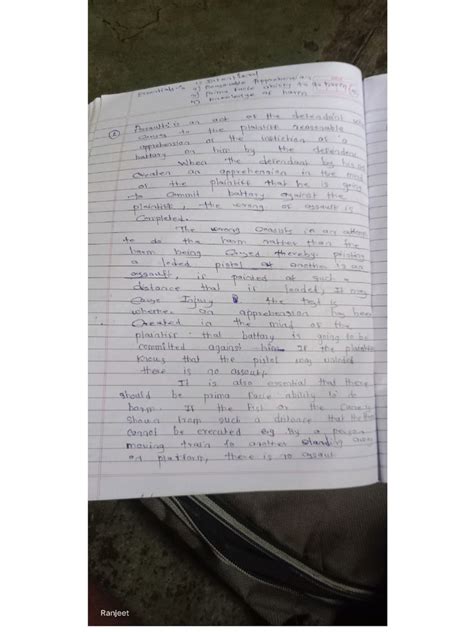 Essentials :- 1) 
2) Reasonable Apprehension
3) Prima facie ability to do harm
4) Knowledge of harm
(2) Assault is an act of the defendant
causes to the plaintiff reasonable
apprehension of the infliction of a
battary on him by the defendent
When the defendant by his
Creates an apprehension in the mind
of the plaintiff that he is going
to Commit battary against the
plaintiff, the wrong of assault is
Completed.
The wrong consists in an
to do the harm rather than the
harm being Caused thereby. pointing
a loded pistol at another is an
assault, if pointed at such a
distance that if loaded, It may
Cause Injury. The test is
an apprehension has been
Created in the mind of the
plaintiff that battary is going to be
committed against him. If the plaintiff
Knows that the pistol was unloded
there is no assault
It is also essential that there
should be prima facie ability to do
harm. If the fist or the
Shown from such a distance that the
cannot be executed eg by a person
moving train to another standing
on platform, there is no assault
Ranjeet